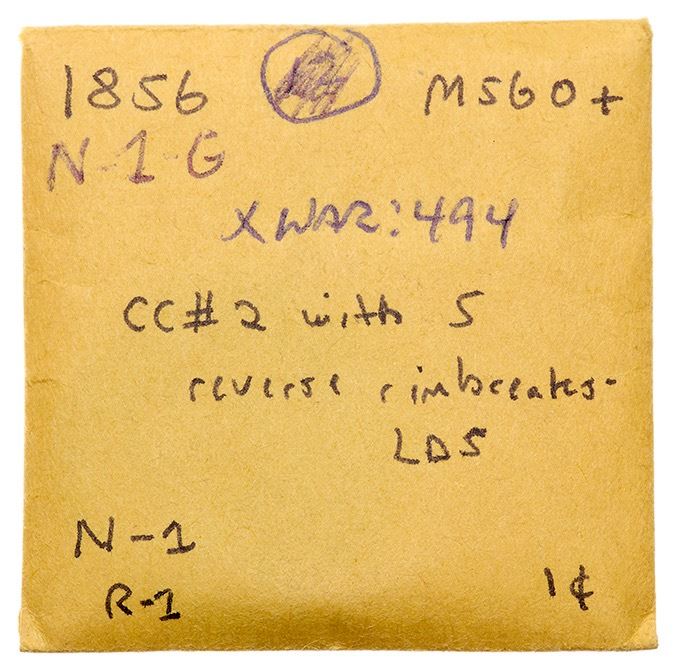 1856 MS60+
N-1-G
XWAR: 494
CC#2 with 5
reverse rimbreaks-
LDS
N-1
R-1 1¢